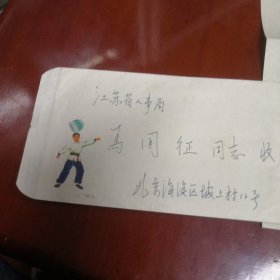 江苏省人事局
马国征同志 收
北京海淀区城上村12号